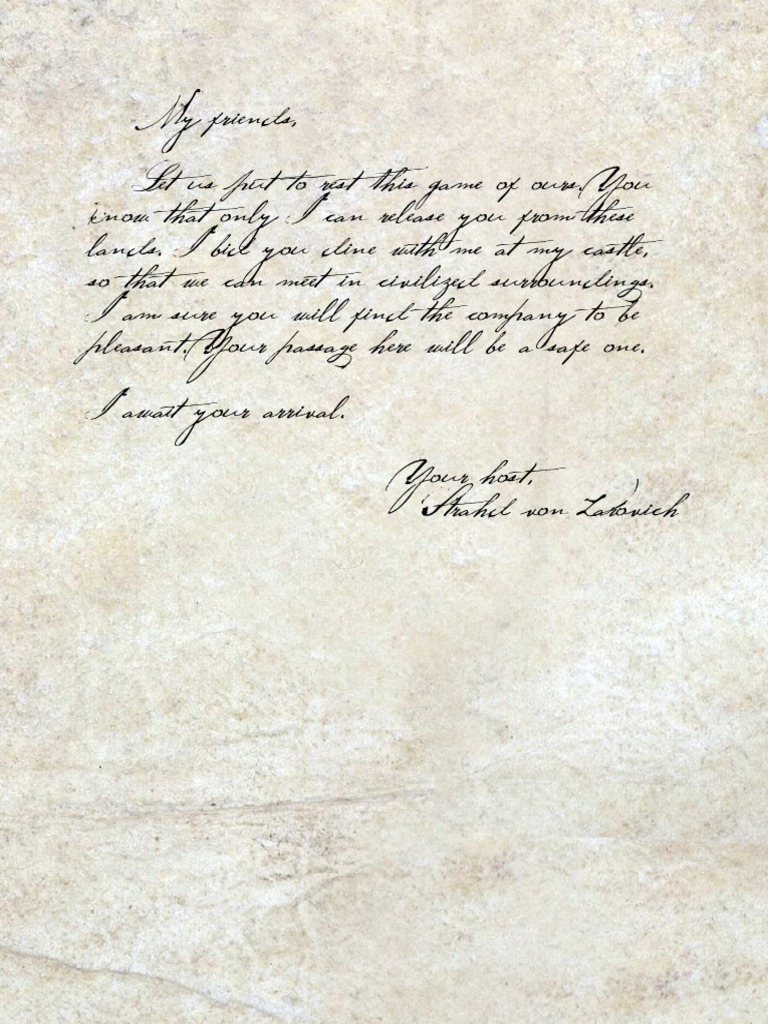 My friends,
Let us put to rest this game of ours. You
know that only I can release you from these
lands. I bid you dine with me at my castle,
so that we can meet in civilized surroundings.
I am sure you will find the company to be
pleasant. Your passage here will be a safe one.
I await your arrival.
Your host,
Strahd von Zarovich